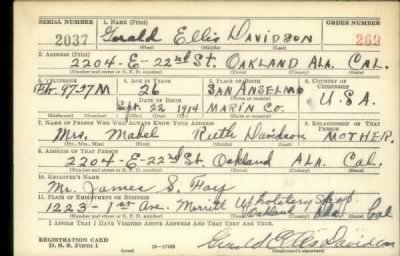 SERIAL NUMBER 1. NAME (Print) ORDER NUMBER
2037 Gerald Ellis Davidson 263
(First) (Middle) (Last)
2. ADDRESS (Print)
2204-E-22nd St. OAKLAND ALA. CAL.
(Number and street or R. F. D. number) (Town) (County) (State)
3. TELEPHONE 4. AGE IN YEARS 5. PLACE OF BIRTH 6. COUNTRY OF CITIZENSHIP
9737M 26 SAN ANSELMO U.S.A.
DATE OF BIRTH (Town or county)
Sept. 22 1914 MARIN CO.
(Exchange) (Number) (Mo.) (Day) (Yr.) (State or country)
7. NAME OF PERSON WHO WILL ALWAYS KNOW YOUR ADDRESS RELATIONSHIP OF THAT PERSON
Mrs. Mabel Ruth Davidson MOTHER.
(Mr., Mrs., Miss) (First) (Middle) (Last)
8. ADDRESS OF THAT PERSON
2204-E-22nd St. Oakland ALA. Cal.
(Number and street or R. F. D. number) (Town) (County) (State)
10. EMPLOYER'S NAME
Mr. James S.
11. PLACE OF EMPLOYMENT OR BUSINESS
1223-1st Ave. Merritt Upholstery Shop
Oakland Ala Cal
(Number and street or R. F. D. number) (Town) (County) (State)
I AFFIRM THAT I HAVE VERIFIED ABOVE ANSWERS AND THAT THEY ARE TRUE.
REGISTRATION CARD
D. S. S. Form 1
Gerald Ellis Davidson